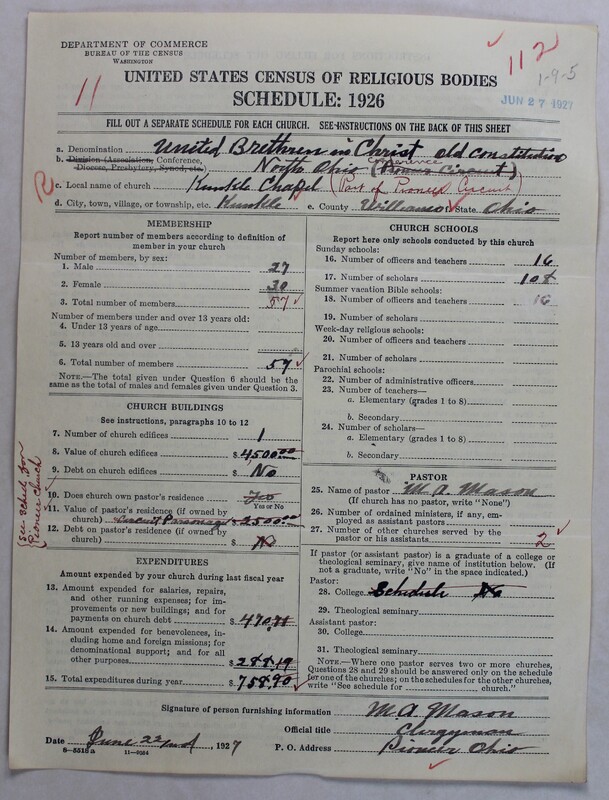 DEPARTMENT OF COMMERCE
BUREAU OF THE CENSUS
WASHINGTON
11
112
1-9-5
JUN 27 1927
UNITED STATES CENSUS OF RELIGIOUS BODIES
SCHEDULE: 1926
FILL OUT A SEPARATE SCHEDULE FOR EACH CHURCH. SEE INSTRUCTIONS ON THE BACK OF THIS SHEET
a. Denomination United Brethren in Christ old constitution
b. Division (Association, Conference, Diocese, Presbytery, Synod, etc.) North Ohio Conference (Pioneer Circuit)
c. Local name of church Kunkle Chapel (Part of Pioneer Circuit)
d. City, town, village, or township, etc. Kunkle e. County Williams State Ohio
MEMBERSHIP
Report number of members according to definition of
member in your church
Number of members, by sex:
1. Male 27
2. Female 30
3. Total number of members 57
Number of members under and over 13 years old:
4. Under 13 years of age
5. 13 years old and over
6. Total number of members 57
NOTE.—The total given under Question 6 should be
same as the total of males and females given under Question 3.
CHURCH BUILDINGS
See instructions, paragraphs 10 to 12
7. Number of church edifices 1
8. Value of church edifices $4500.00
9. Debt on church edifices $ No
(See sched. for Pioneer church)
10. Does church own pastor's residence Yes
Yes or No
11. Value of pastor's residence (if owned by
church) Circuit Parsonage $2500.00
12. Debt on pastor's residence (if owned by
church) $ No
EXPENDITURES
Amount expended by your church during last fiscal year
13. Amount expended for salaries, repairs,
and other running expenses; for im-
provements or new buildings; and for
payments on church debt $470.71
14. Amount expended for benevolences, in-
cluding home and foreign missions; for
denominational support; and for all
other purposes $288.19
15. Total expenditures during year $758.90
CHURCH SCHOOLS
Report here only schools conducted by this church
Sunday schools:
16. Number of officers and teachers 16
17. Number of scholars 108
Summer vacation Bible schools:
18. Number of officers and teachers 16
19. Number of scholars
Week-day religious schools:
20. Number of officers and teachers
21. Number of scholars
Parochial schools:
22. Number of administrative officers
23. Number of teachers—
a. Elementary (grades 1 to 8)
b. Secondary
24. Number of scholars—
a. Elementary (grades 1 to 8)
b. Secondary
PASTOR
25. Name of pastor M. A. Mason
(If church has no pastor, write "None")
26. Number of ordained ministers, if any, em-
ployed as assistant pastors
27. Number of other churches served by the
pastor or his assistants 2
If pastor (or assistant pastor) is a graduate of a college or
theological seminary, give name of institution below. (If
not a graduate, write "No" in the space indicated.)
Pastor:
28. College Schedule No
29. Theological seminary
Assistant pastor:
30. College
31. Theological seminary
NOTE.—Where one pastor serves two or more churches,
Questions 28 and 29 should be answered only on the schedule
for one of the churches; on the schedules for the other churches,
write "See schedule for church."
Signature of person furnishing information M. A. Mason
Official title Clergyman
Date June 22nd, 1927 P. O. Address Pioneer Ohio
8-5518a